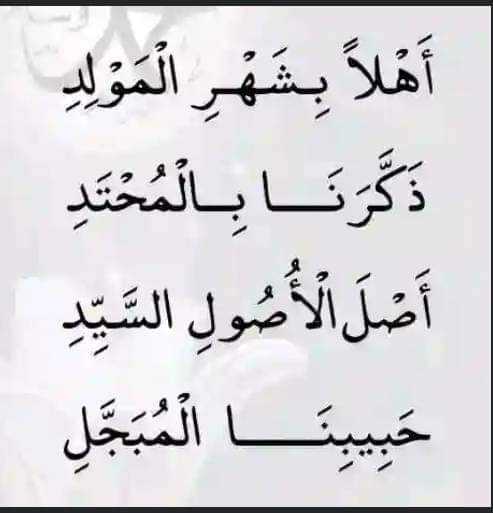 أَهْلاً بِشَهْرِ الْمَوْلِدِ
ذَكَّرَنَا بِالْمُحْتَدِ
أَصْلَ الْأُصُولِ السَّيِّدِ
حَبِيبِنَا الْمُبَجَّلِ